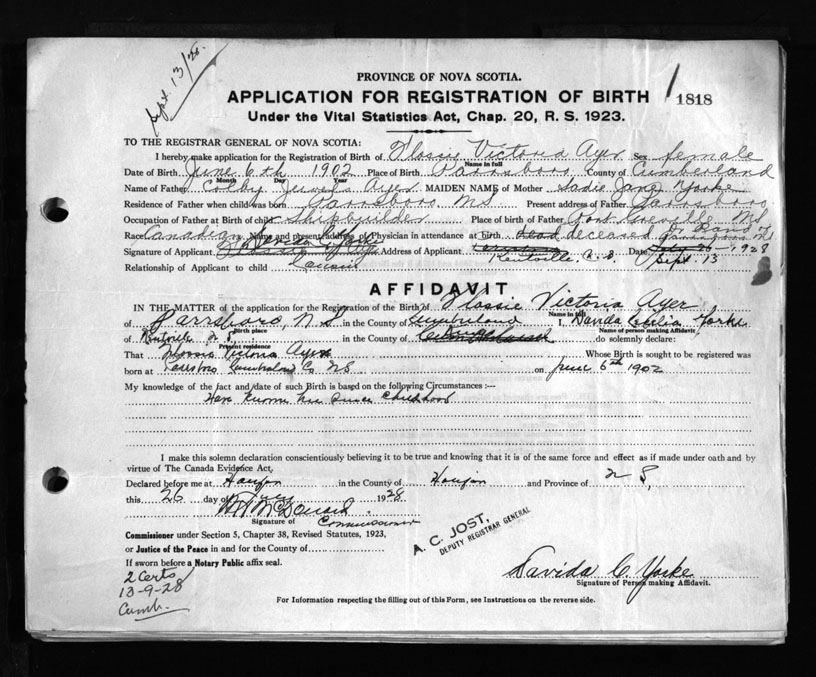 Sept. 13/28.
PROVINCE OF NOVA SCOTIA.
APPLICATION FOR REGISTRATION OF BIRTH
1818
Under the Vital Statistics Act, Chap. 20, R. S. 1923.
TO THE REGISTRAR GENERAL OF NOVA SCOTIA:
I hereby make application for the Registration of Birth of Flossie Victoria Ayer Sex female
Name in full
Date of Birth June 6th 1902 Place of Birth Parrsboro County of Cumberland
Month Day Year
Name of Father Colby Ayer MAIDEN NAME of Mother Sadie Jane Yorke
Residence of Father when child was born Parrsboro NS Present address of Father Parrsboro
Occupation of Father at Birth of child Shipbuilder Place of birth of Father Port Greville NS
Race Canadian Name and present address of Physician in attendance at birth Dead deceased Dr Rand of
Signature of Applicant Davida C Yorke Address of Applicant Kentville, N. S. Date Sept. 13 1928
Relationship of Applicant to child Cousin
AFFIDAVIT
IN THE MATTER of the application for the Registration of the Birth of Flossie Victoria Ayer
Name in full
of Parrsboro, N S in the County of Cumberland I, Davida Yorke
Birth place Name of person making Affidavit
of Kentville N. S. in the County of do solemnly declare:
Present residence
That Flossie Victoria Ayer Whose Birth is sought to be registered was
born at Parrsboro Cumberland Co NS on June 6th 1902
My knowledge of the fact and date of such Birth is based on the following Circumstances :—
Have known her since childhood
I make this solemn declaration conscientiously believing it to be true and knowing that it is of the same force and effect as if made under oath and by
virtue of The Canada Evidence Act,
Declared before me at Halifax in the County of Halifax and Province of N S,
this 26 day of July 1928
Signature of Commissioner
Commissioner under Section 5, Chapter 38, Revised Statutes, 1923,
A. C. JOST,
DEPUTY REGISTRAR GENERAL
or Justice of the Peace in and for the County of
If sworn before a Notary Public affix seal.
2 Certs
Davida C. Yorke
Signature of Person making Affidavit.
13-9-28
Cumb.
For Information respecting the filling out of this Form, see Instructions on the reverse side.